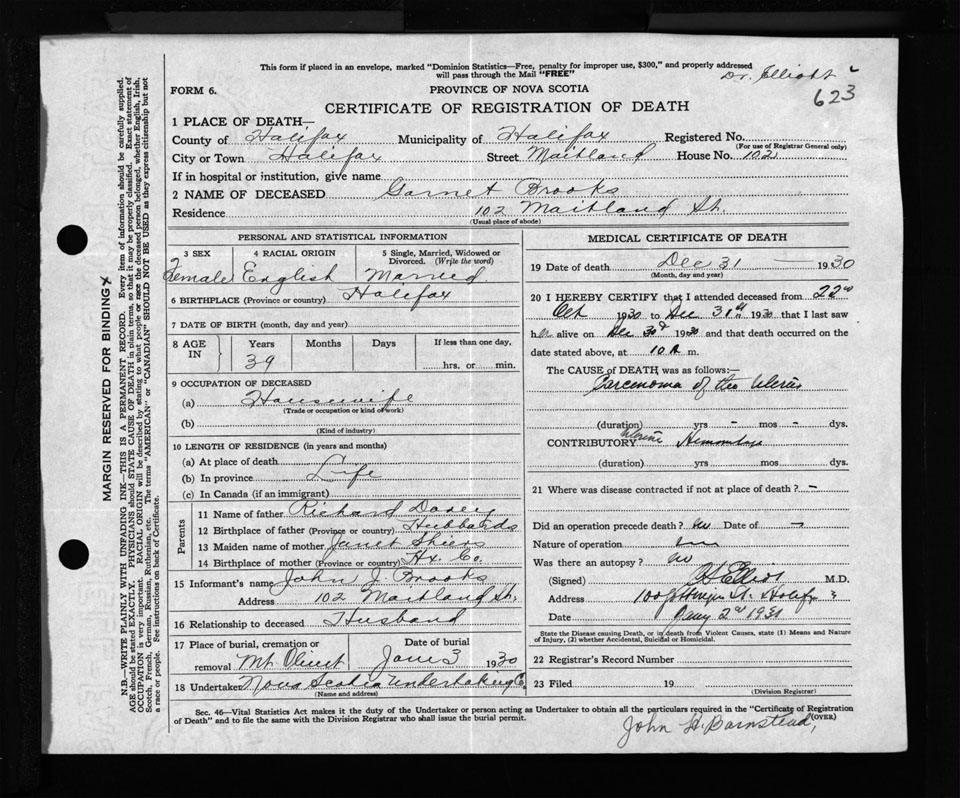 This form if placed in an envelope, marked "Dominion Statistics—Free, penalty for improper use, $300," and properly addressed
will pass through the Mail "FREE"
Dr. Elliott
623
FORM 6.
PROVINCE OF NOVA SCOTIA
CERTIFICATE OF REGISTRATION OF DEATH
1 PLACE OF DEATH—
County of Halifax Municipality of Halifax Registered No.
(For use of Registrar General only)
City or Town Halifax Street Maitland House No. 102
If in hospital or institution, give name
2 NAME OF DECEASED Garnet Brooks
Residence 102 Maitland St.
(Usual place of abode)
PERSONAL AND STATISTICAL INFORMATION
3 SEX 4 RACIAL ORIGIN 5 Single, Married, Widowed or Divorced. (Write the word)
Female English Married
6 BIRTHPLACE (Province or country) Halifax
7 DATE OF BIRTH (month, day and year)
8 AGE IN Years Months Days If less than one day,
39 hrs. or min.
9 OCCUPATION OF DECEASED
(a) Housewife
(Trade or occupation or kind of work)
(b)
(Kind of industry)
10 LENGTH OF RESIDENCE (in years and months)
(a) At place of death
(b) In province Life
(c) In Canada (if an immigrant)
Parents
11 Name of father Richard
12 Birthplace of father (Province or country) Hubbards
13 Maiden name of mother Janet
14 Birthplace of mother (Province or country) Hx. Co.
15 Informant's name John J. Brooks
Address 102 Maitland St.
16 Relationship to deceased Husband
17 Place of burial, cremation or removal Mt. Olivet Date of burial Jan 3 1930
18 Undertaker Nova Scotia Undertaking Co.
(Name and address)
MEDICAL CERTIFICATE OF DEATH
19 Date of death Dec 31 — 1930
(Month, day and year)
20 I HEREBY CERTIFY that I attended deceased from 22nd
Oct 1930 to Dec 31st 1930 that I last saw
her alive on Dec 30th 1930 and that death occurred on
date stated above, at 10 A m.
The CAUSE of DEATH was as follows:—
Carcenoma of the Uterus
(duration) yrs - mos - dys.
CONTRIBUTORY Uterine
(duration) yrs mos dys.
21 Where was disease contracted if not at place of death? -
Did an operation precede death? no Date of -
Nature of operation
Was there an autopsy? no
(Signed) Elliot M.D.
Address 100 St.
Date Jany 2nd 1931
State the Disease causing Death, or in death from Violent Causes, state (1) Means and Nature
of Injury, (2) whether Accidental, Suicidal or Homicidal.
22 Registrar's Record Number
23 Filed 19
(Division Registrar)
Sec. 46—Vital Statistics Act makes it the duty of the Undertaker or person acting as Undertaker to obtain all the particulars required in the "Certificate of Registration
of Death" and to file the same with the Division Registrar who shall issue the burial permit.
(OVER)
John H. Barnstead,
MARGIN RESERVED FOR BINDING
N.B.—WRITE PLAINLY WITH UNFADING INK—THIS IS A PERMANENT RECORD. Every item of information should be carefully supplied.
AGE should be stated EXACTLY. PHYSICIANS should STATE CAUSE OF DEATH in plain terms, so that it may be properly classified. Exact statement of
OCCUPATION is very important. RACIAL ORIGIN will be described by stating to what people or race the deceased person belonged, whether English, Irish,
Scotch, French, German, Russian, Ruthenian, etc. The terms "AMERICAN" or "CANADIAN" SHOULD NOT BE USED as they express citizenship but not
a race or people. See instructions on back of Certificate.